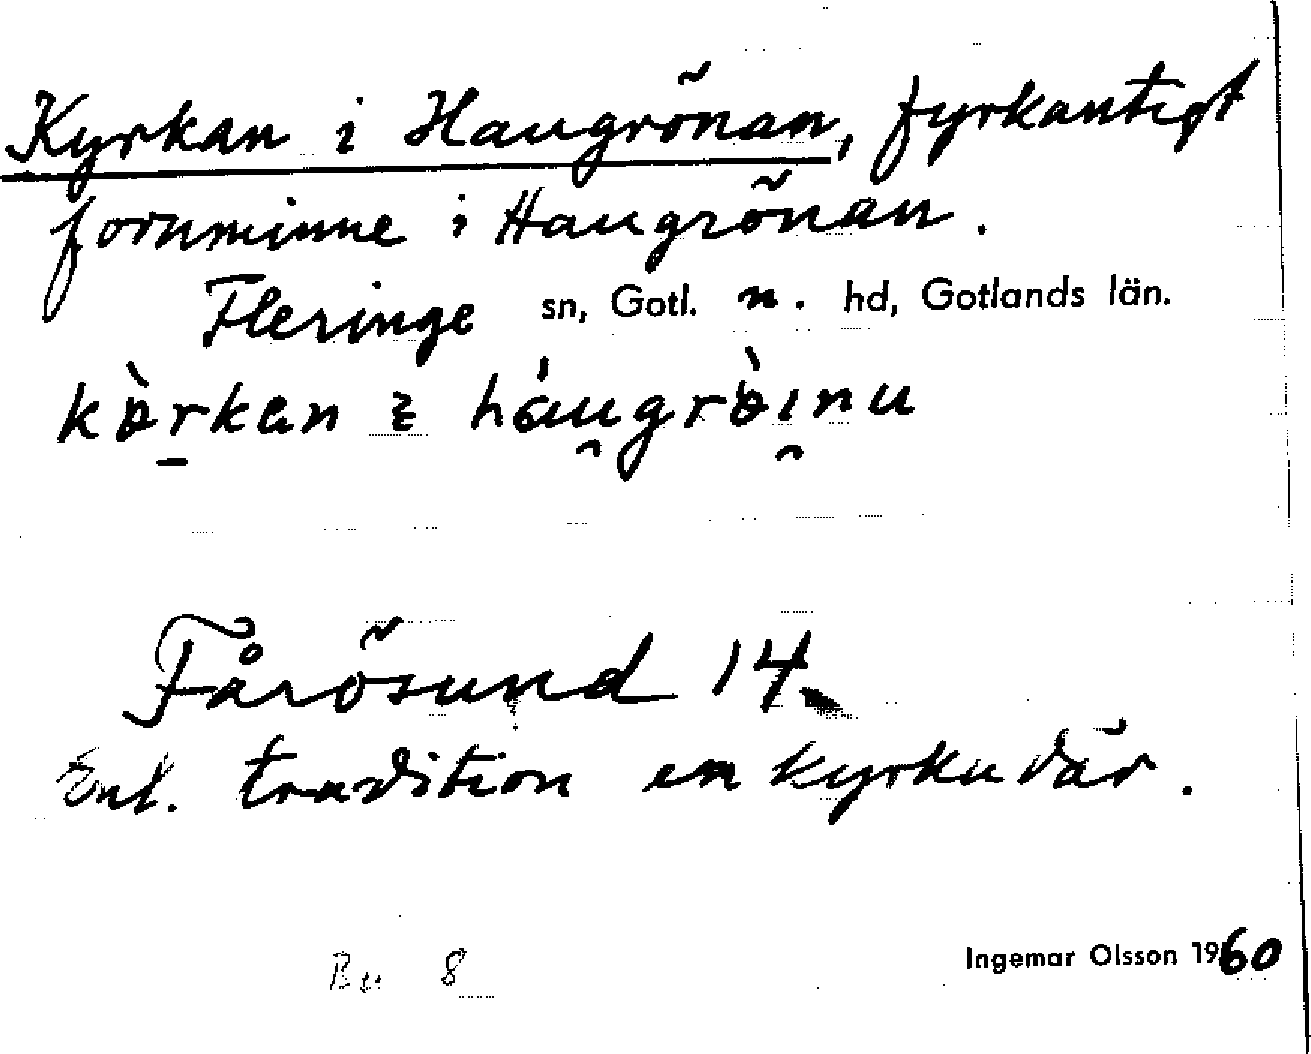 Kyrkan i Haugrönan, fyrkantigt
fornminne i Haugrönan.
Fleringe sn, Gotl. n. hd, Gotlands län.
Fårösund 14
Enl. tradition en kyrka där.
Bu 8
Ingemar Olsson 1960